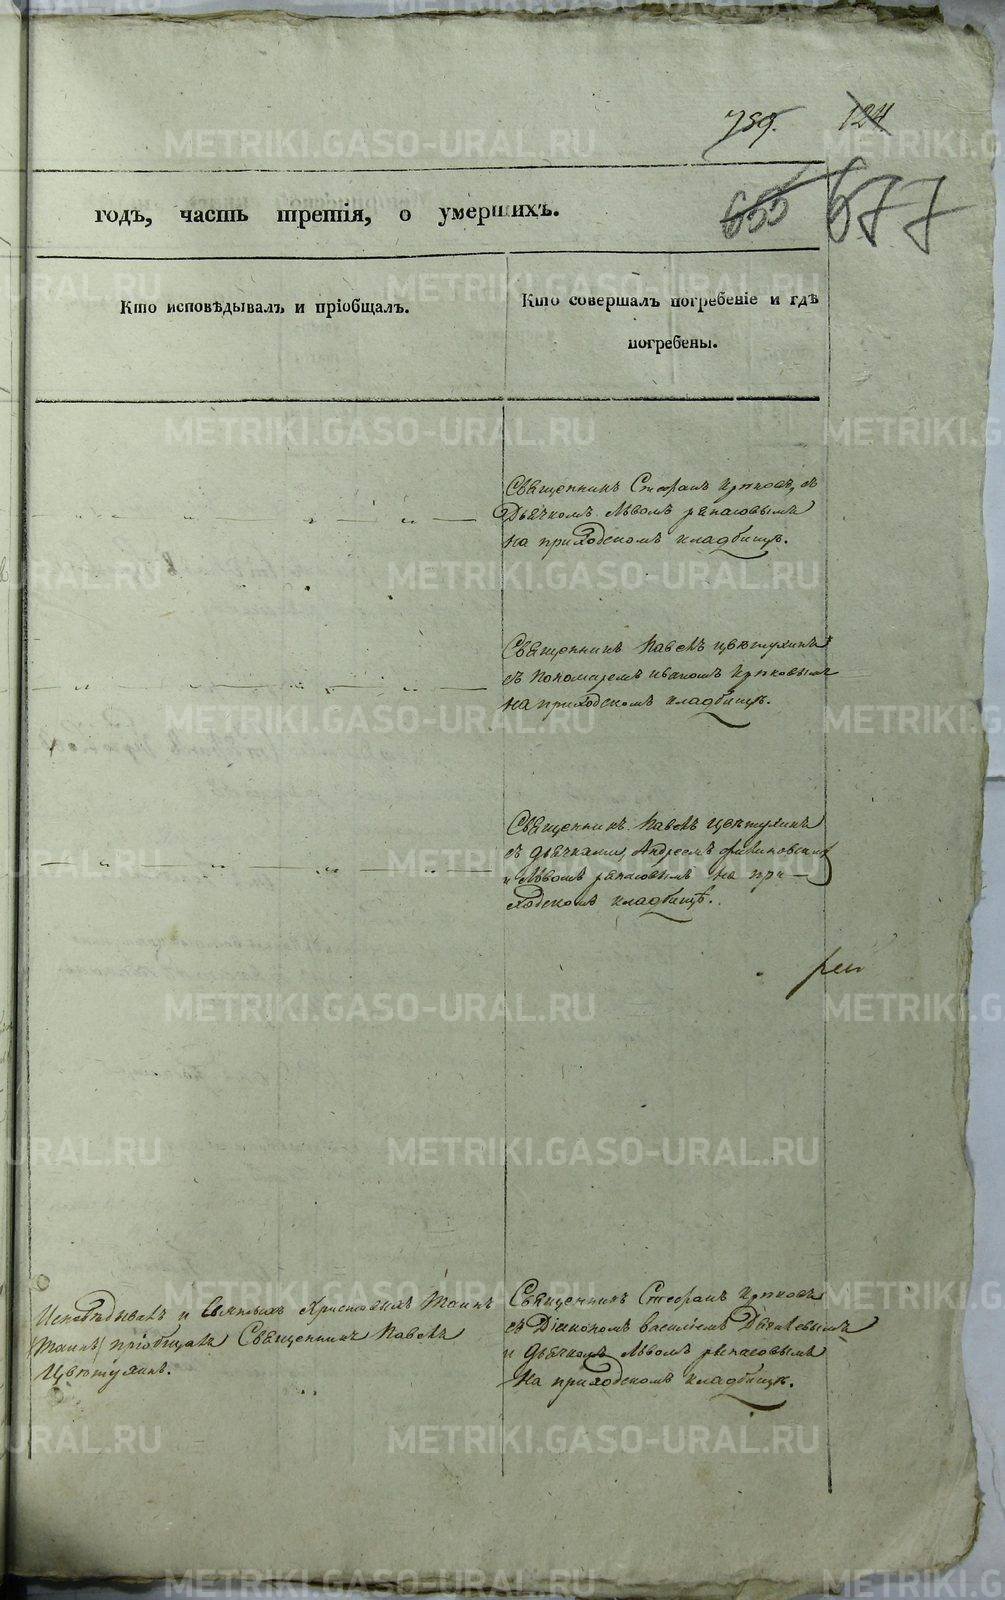 759. 124
годъ, часть третія, о умершихъ. 655 677
Кто исповѣдывалъ и пріобщалъ.
Кто совершалъ погребеніе и гдѣ
погребены.
Священникъ Стефанъ съ
Дьячкомъ Львомъ
на приходскомъ кладбищѣ.
Священникъ Павелъ Цвѣтухинъ
съ Пономаремъ Иваномъ
на приходскомъ кладбищѣ.
Священникъ Павелъ Цвѣтухинъ
съ дьячками, Андреемъ
и Львомъ на при-
ходскомъ кладбищѣ.
Исповѣдывалъ и Святыхъ Христовыхъ Таинъ
Таинъ пріобщалъ Священникъ Павелъ
Цвѣтухинъ.
Священникъ Стефанъ
съ Діакономъ Василіемъ
и дьячкомъ Львомъ
на приходскомъ кладбищѣ.
METRIKI.GASO-URAL.RU